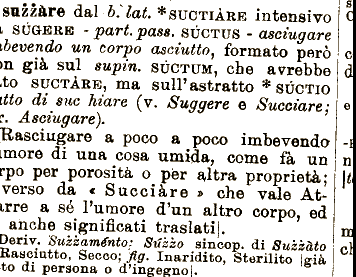 suẓẓàre dal b. lat. *SUCTIÀRE intensivo
SÙGERE - part. pass. SÚCTUS - asciugare
bevendo un corpo asciutto, formato però
n già sul supin. SÚCTUM, che avrebbe
to SUCTÀRE, ma sull'astratto *SÚCTIO
tto di suc hiare (v. Suggere e Succiare;
r. Asciugare).
Rasciugare a poco a poco imbevendo
umore di una cosa umida, come fà un
rpo per porosità o per altra proprietà;
verso da « Succiàre » che vale At-
arre a sé l'umore d'un altro corpo, ed
anche significati traslati|.
Deriv. Suẓẓaménto; Súẓẓo sincop. di Suẓẓàto
Rasciutto, Secco; fig. Inaridito, Sterilito |già
to di persona o d'ingegno|.